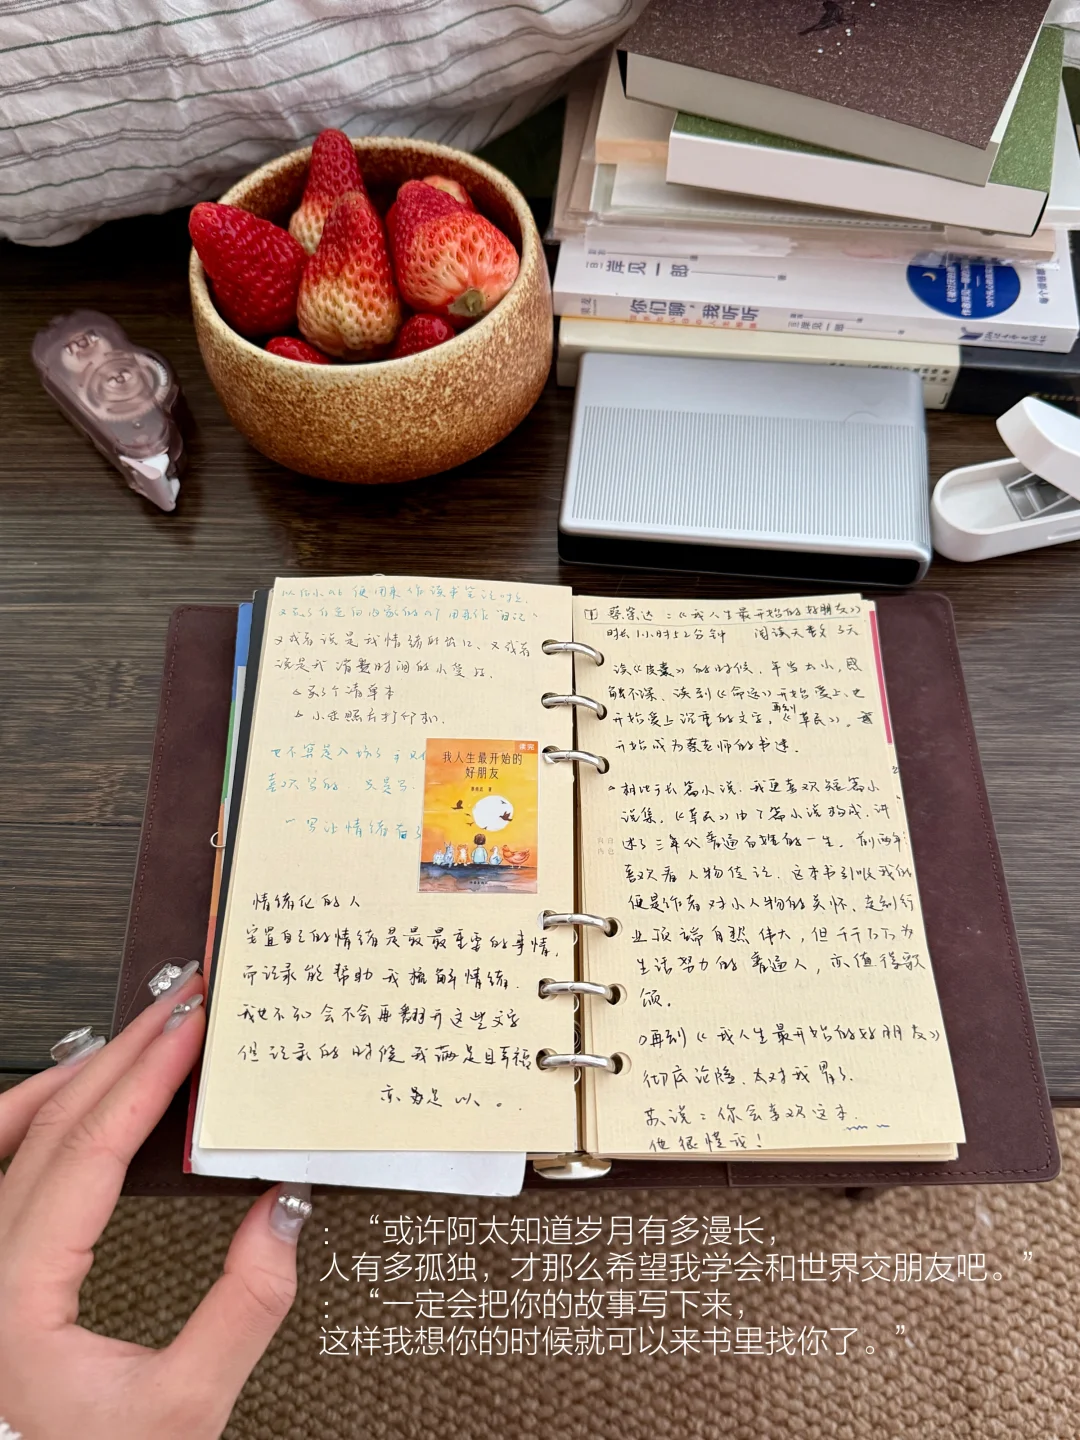 岸见一郎
你们聊，我听听
又或者说是我情绪的出口、又或者
说是我消费时间的小废话。
买了个清单本
小米照片打印机.
喜欢写的
写让情绪有了
读完
我人生最开始的
好朋友
情绪化的人
安置自己的情绪是最最重要的事情,
而记录能帮助我梳解情绪.
我也不知会不会再翻开这些文字
但记录的时候我满足且幸福
亦足以。
① 蔡崇达：《我人生最开始的好朋友》
阅读天数 3天
读《皮囊》的时候，年岁太小，感
触不深、读到《命运》开始爱上, 也
开始爱上沉重的文字，再到《草民》。
开始成为蔡老师的书迷.
相比于长篇小说. 我更喜欢短篇小
说集.《草民》由7篇小说构成. 讲
述了三年代普通百姓的一生. 前两年
喜欢看人物传记. 这本书引吸我的
便是作者对小人物的关怀、走到行
业顶端自然伟大，但千千万万为
生活努力的普通人，亦值得歌
颂.
再到《我人生最开始的好朋友》
彻底沦陷、太对我胃了.
苏说：你会喜欢这本.
他很懂我！
：“或许阿太知道岁月有多漫长，
人有多孤独，才那么希望我学会和世界交朋友吧。”
：“一定会把你的故事写下来，
这样我想你的时候就可以来书里找你了。”